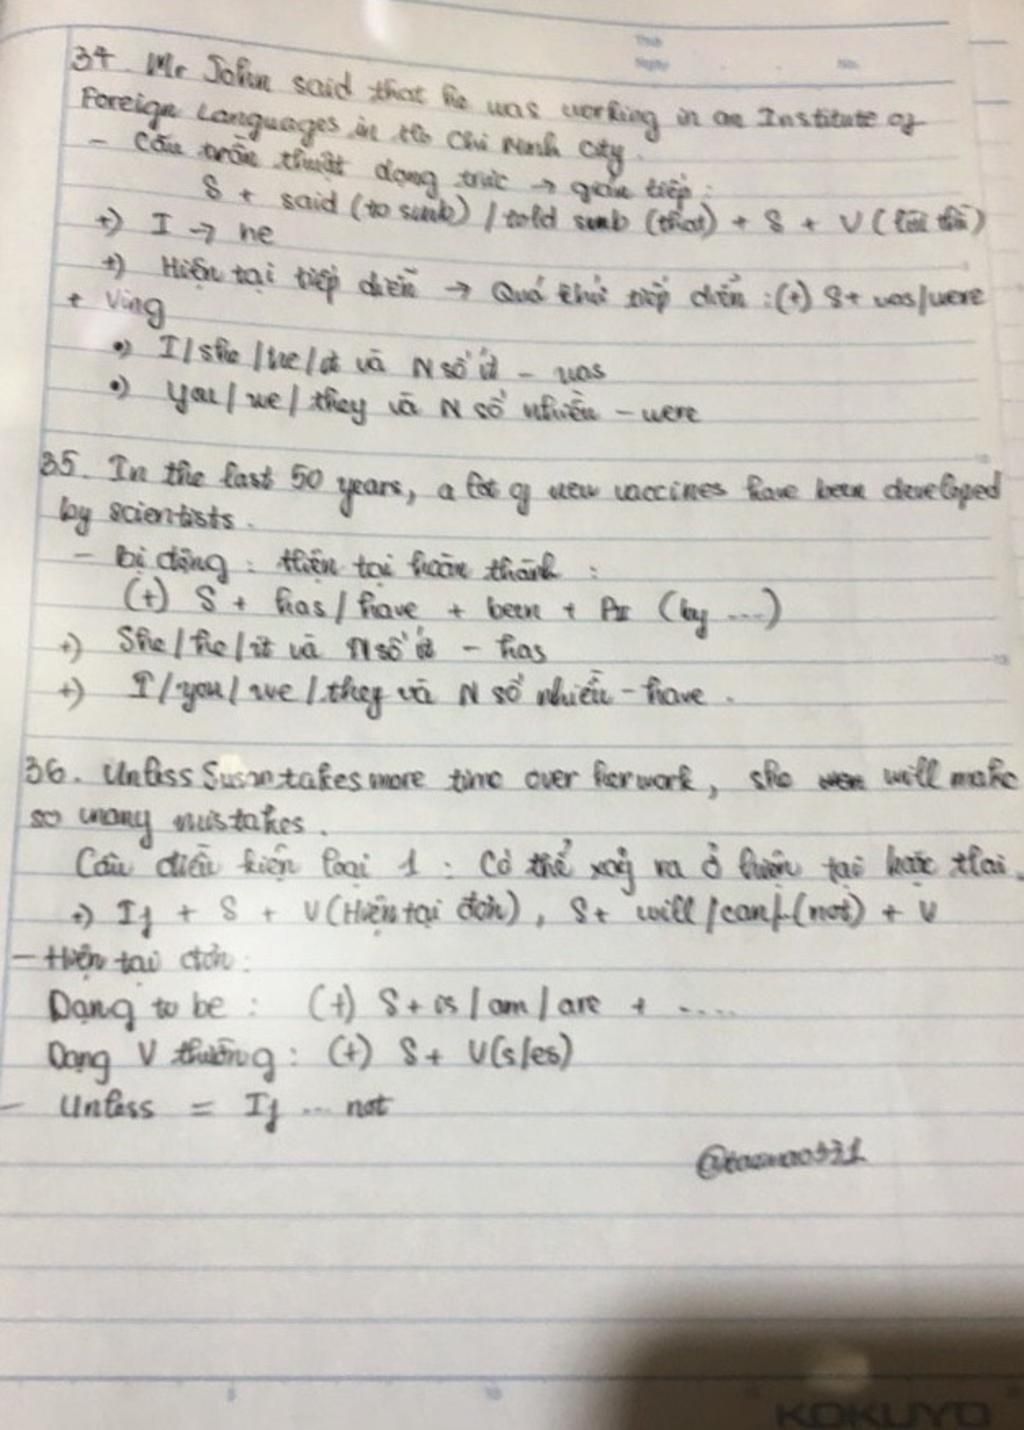 34. Mr John said that he was working in an Institute of
Foreign Languages in Ho Chi Minh City.
- Câu trần thuật dạng trực → gián tiếp:
S + said (to smb) / told smb (that) + S + V (lùi thì)
+) I → he
+) Hiện tại tiếp diễn → Quá khứ tiếp diễn : (+) S + was/were
+ Ving
•) I / she / he / it và N số ít - was
•) You / we / they và N số nhiều - were
35. In the last 50 years, a lot of new vaccines have been developed
by scientists.
- Bị động : Hiện tại hoàn thành :
(+) S + has / have + been + PII (by ...)
+) She / he / it và N số ít - has
+) I / you / we / they và N số nhiều - have .
36. Unless Susan takes more time over her work, she will make
so many mistakes.
Câu điều kiện loại 1 : Có thể xảy ra ở hiện tại hoặc tlai.
+) If + S + V (Hiện tại đơn), S + will / can /(not) + V
- Hiện tại đơn:
Dạng to be : (+) S + is / am / are + ....
Dạng V thường : (+) S + V(s/es)
- Unless = If ... not
KOKUYO